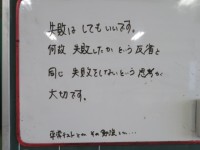 失敗は してもいいです。
何故 失敗したか という 反省と
同じ 失敗をしないという 思考が
大切です。